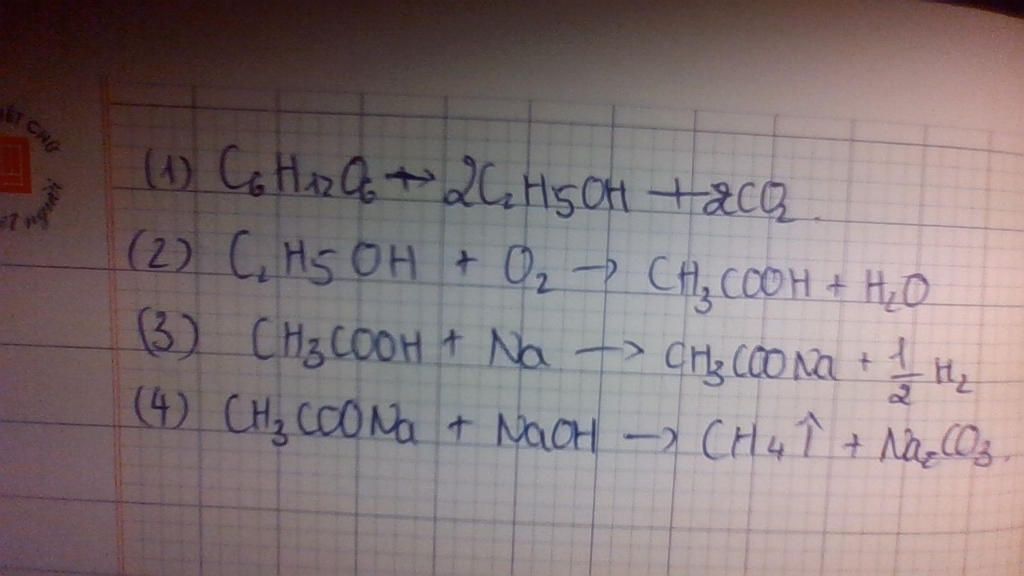 (1) C₆H₁₂O₆ → 2C₂H5OH + 2CO₂
(2) C₂H5OH + O₂ → CH₃COOH + H₂O
(3) CH₃COOH + Na → CH₃COONa + 1/2 H₂
(4) CH₃COONa + NaOH → CH4↑ + Na₂CO₃.